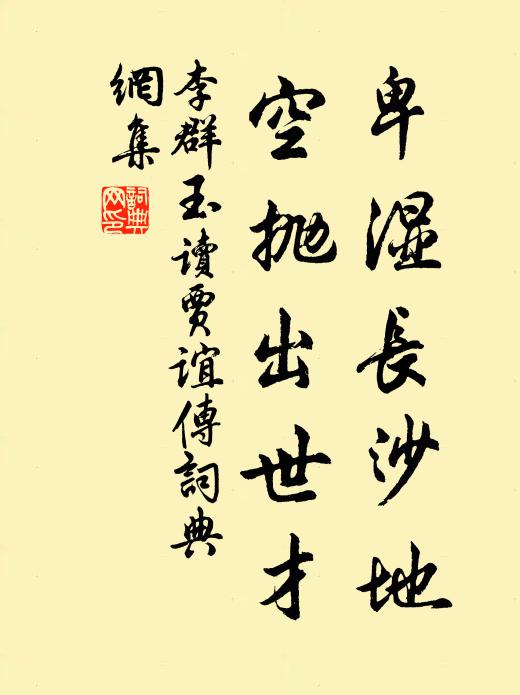 卑濕長沙地
空拋出世才
李群玉讀賈誼傳詞典
網集
詞典
网印